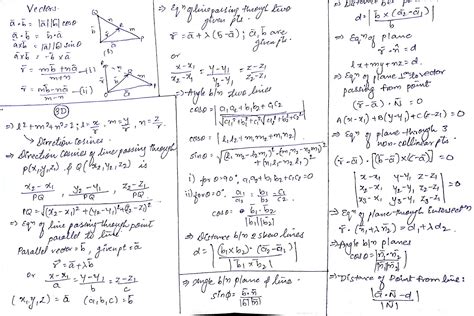 Vectors
a⃗·b⃗ = |a⃗||b⃗| cosθ
a⃗·b⃗ = b⃗·a⃗
a⃗×b⃗ = |a⃗||b⃗| sinθ
r⃗ = mb⃗+na⃗ —(i)
m+n
r⃗ = mb⃗-na⃗ —(ii)
m-n
3D
⇒ l²+m²+n²=1; l=x/r, m=y/r, n=z/r
Direction cosines
⇒ Direction Cosines of line passing through
P(x₁,y₁,z₁) & Q(x₂,y₂,z₂) is
x₂-x₁/PQ, y₂-y₁/PQ, z₂-z₁/PQ
PQ = √(x₂-x₁)²+(y₂-y₁)²+(z₂-z₁)²
⇒ Eqⁿ of line passing through point
parallel to line
Parallel vector = b⃗, given pt = a⃗
r⃗ = a⃗+λb⃗
or x-x₁/a = y-y₁/b = z-z₁/c
(x₁,y₁,z₁) = a⃗ (a,b,c) = b⃗
⇒ Eqⁿ of line passing through two
given pts.
r⃗ = a⃗+λ(b⃗-a⃗); a⃗, b⃗ are
given pts.
or
x-x₁/x₂-x₁ = y-y₁/y₂-y₁ = z-z₁/z₂-z₁
⇒ Angle b/n two lines
cosθ = a₁a₂+b₁b₂+c₁c₂
√a₁²+b₁²+c₁² √a₂²+b₂²+c₂²
cosθ = |l₁l₂+m₁m₂+n₁n₂|
i) for θ=90°, a₁a₂+b₁b₂+c₁c₂=0
ii) for θ=0°, a₁/a₂ = b₁/b₂ = c₁/c₂
cosθ = b⃗₁·b⃗₂
|b⃗₁||b⃗₂|
⇒ Distance b/n 2 skew lines
d = |(b⃗₁×b⃗₂)·(a⃗₂-a⃗₁)|
|b⃗₁×b⃗₂|
⇒ Angle b/n plane & line
sinφ = b⃗·n⃗
|b⃗||n⃗|
d = |b⃗×(a⃗₂-a⃗₁)|
|b⃗|
⇒ Eqⁿ of plane
r⃗·n⃗ = d
lx+my+nz = d
⇒ Eqⁿ of plane ⊥ to vector
passing from point
(r⃗-a⃗)·N⃗ = 0
A(x-x₁)+B(y-y₁)+C(z-z₁)=0
⇒ Eqⁿ of plane through 3
non-collinear pts.
(r⃗-a⃗)·[(b⃗-a⃗)×(c⃗-a⃗)]=0
x-x₁ y-y₁ z-z₁
x₂-x₁ y₂-y₁ z₂-z₁ = 0
x₃-x₁ y₃-y₁ z₃-z₁
⇒ Eqⁿ of plane through
r⃗·(n⃗₁+λn⃗₂) = d₁+λd₂
⇒ Angle b/n planes
cosθ = |n⃗₁·n⃗₂|
|n⃗₁||n⃗₂|
⇒ Distance of Point from line:
|a⃗·N⃗-d|
|N⃗|